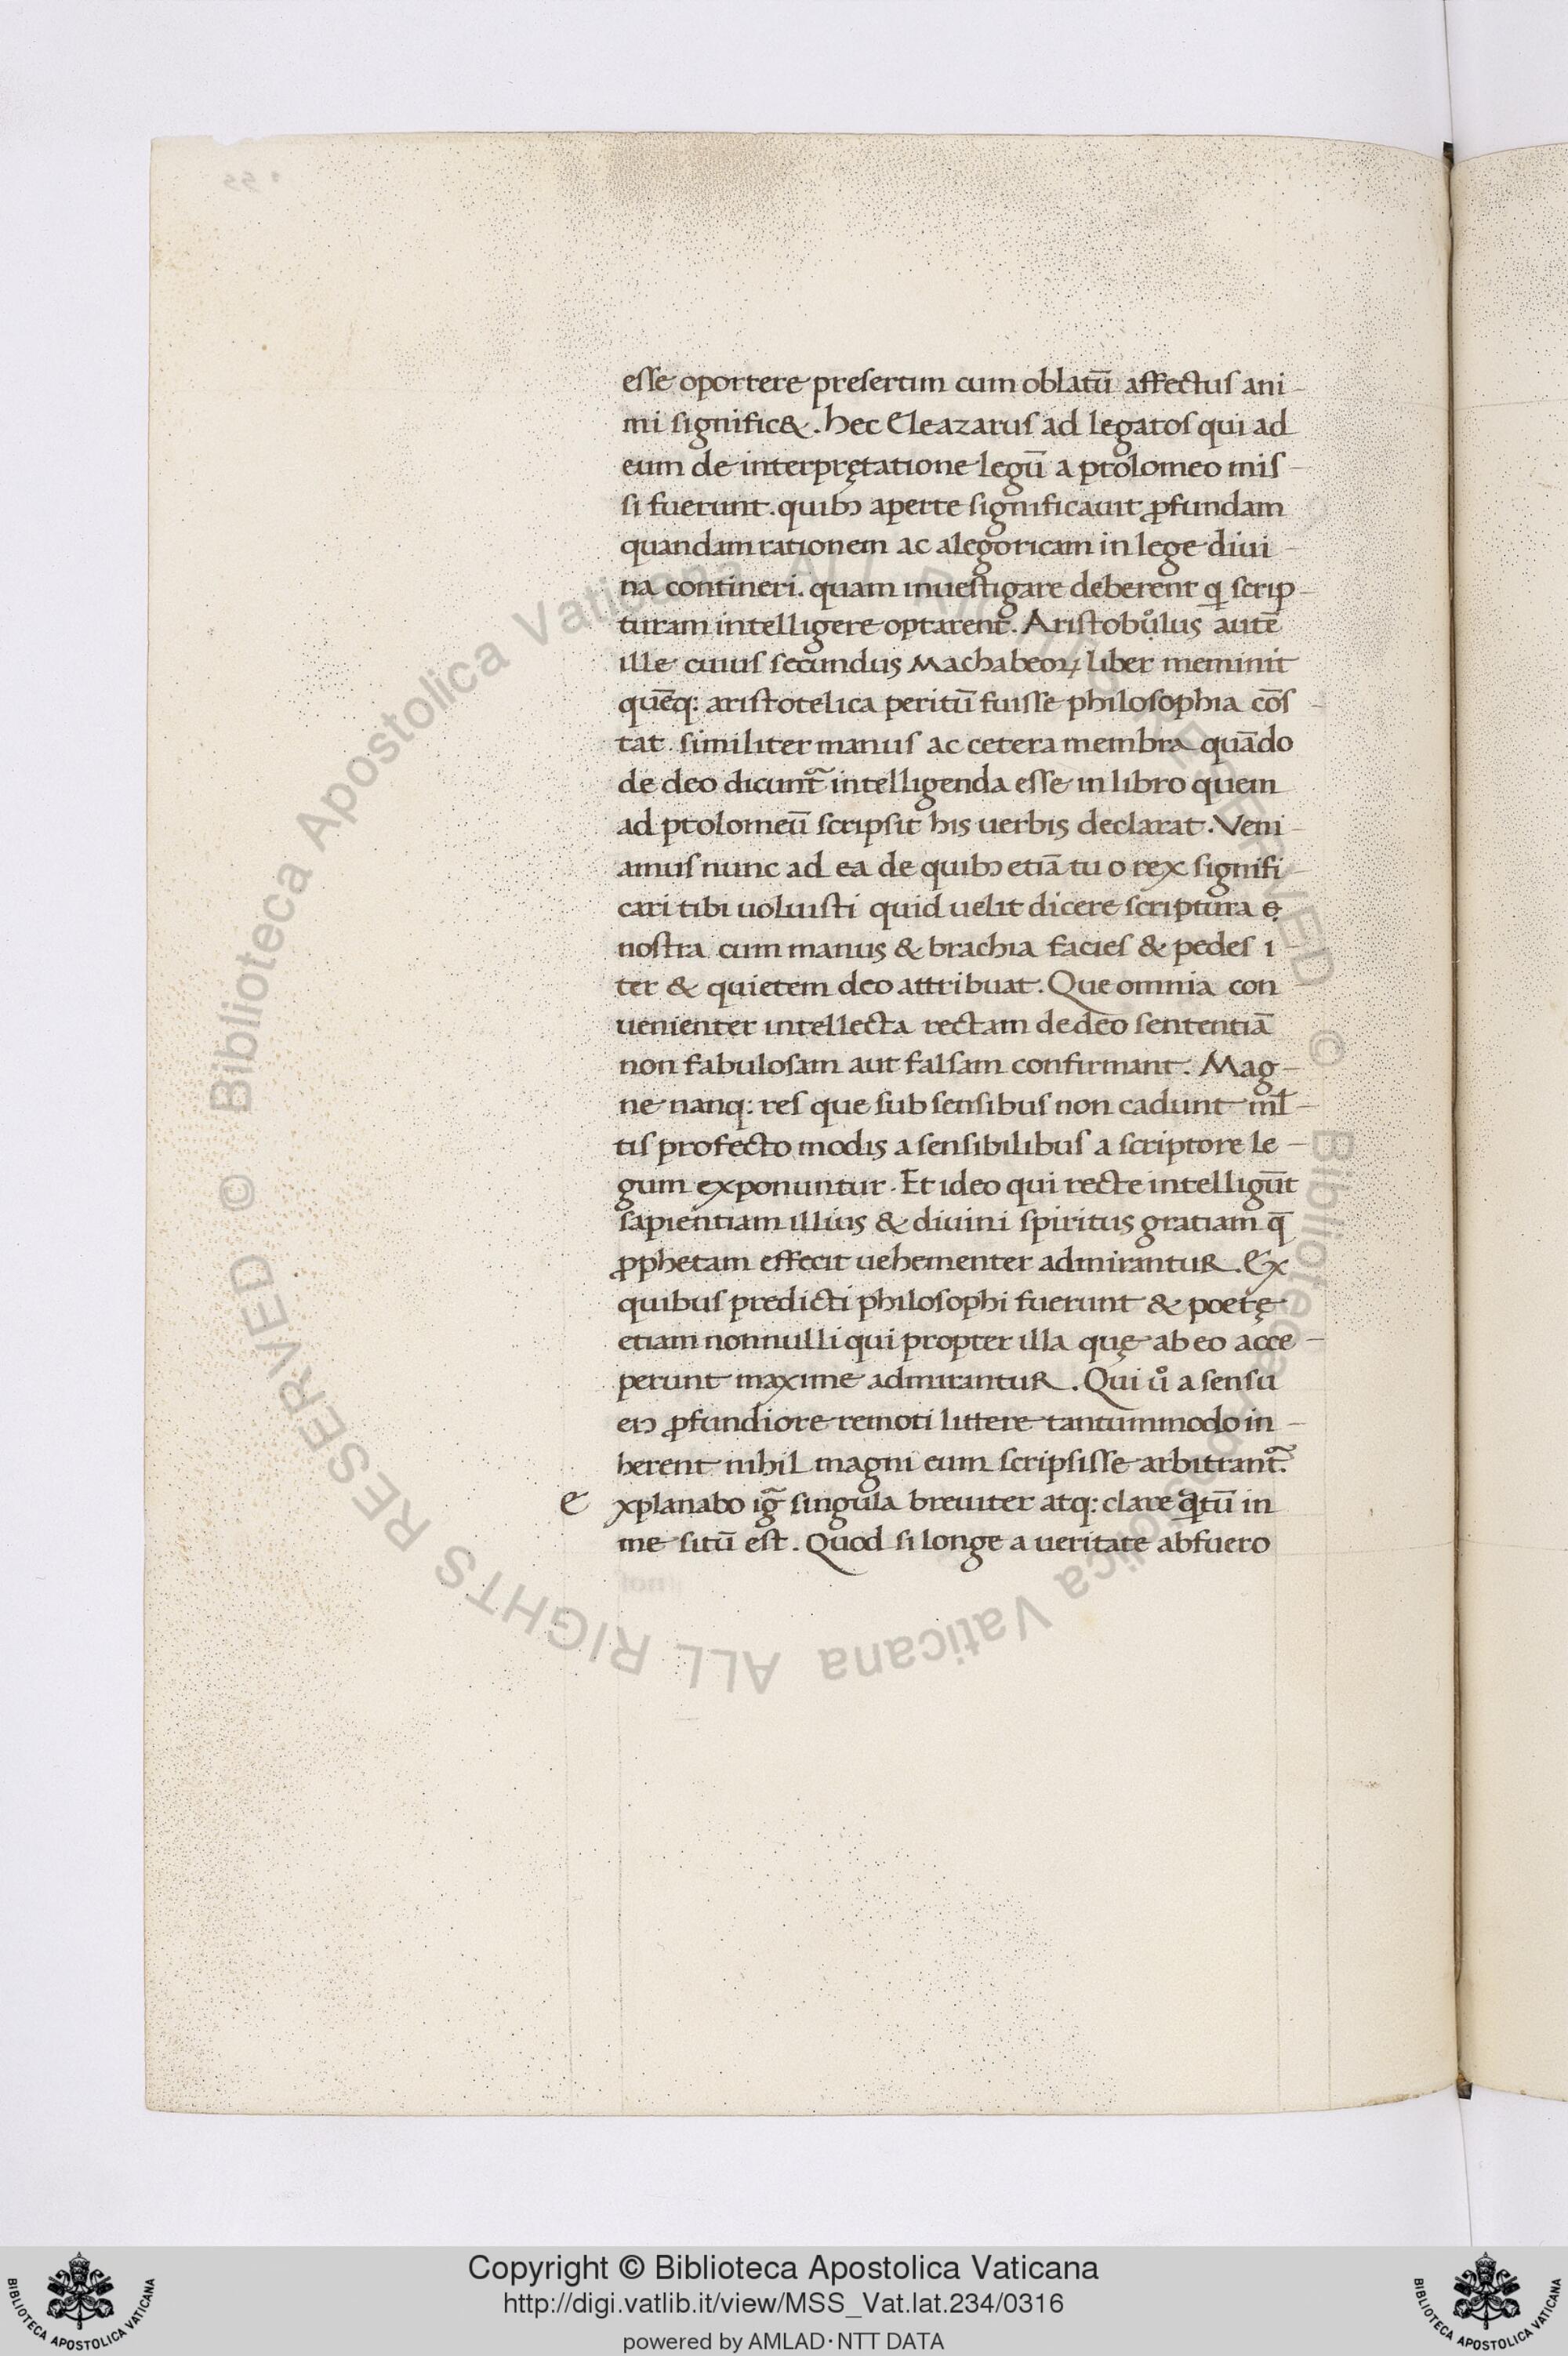 esse oportere presertim cum oblatū affectus ani-
mi signific&. hec Eleazarus ad legatos qui ad
eum de interprętatione legū a ptolomeo mis-
si fuerunt. quibꝫ aperte significauit ꝓfundam
quandam rationem ac alegoricam in lege diui-
na contineri. quam inuestigare deberent qͥ scrip-
turam intelligere optarent. Aristobůlus autē
ille cuius secundus Machabeoꝝ liber meminit
quēq: aristotelica peritū fuisse philosophia cōs-
tat similiter manus ac cetera membra quādo
de deo dicunt᷑ intelligenda esse in libro quem
ad ptolomeū scripsit his uerbis declarat. Veni-
amus nunc ad ea de quibꝫ etiā tu o rex signifi-
cari tibi uoluisti quid uelit dicere scriptura ẹ
nostra cum manus & brachia facies & pedes i-
ter & quietem deo attribuat. Que omnia con-
uenienter intellecta rectam de deo sententiā
non fabulosam aut falsam confirmant. Mag-
ne nanq: res que sub sensibus non cadunt ml̄-
tis profecto modis a sensibilibus a scriptore le-
gum exponuntur. Et ideo qui recte intelligūt
sapientiam illius & diuini spiritus gratiam q̄
ꝓphetam effecit uehementer admirantuR. Ex
quibus predicti philosophi fuerunt & poetę
etiam nonnulli qui propter illa quę ab eo acce-
perunt maxime admirantuR. Qui ů a sensu
eiꝫ ꝓfundiore remoti littere tantummodo in-
herent nihil magni eum scripsisse arbitrant᷑.
e xplanabo ig᷑ singula breuiter atq: clare qͣtū in
me sitū est. Quod si longe a ueritate abfuero
© Biblioteca Apostolica Vaticana ALL RIGHTS RESERVED © Biblioteca Apostolica Vaticana ALL RIGHTS RESERVED
Copyright © Biblioteca Apostolica Vaticana
http://digi.vatlib.it/view/MSS_Vat.lat.234/0316
powered by AMLAD·NTT DATA
BIBLIOTECA APOSTOLICA VATICANA
BIBLIOTECA APOSTOLICA VATICANA